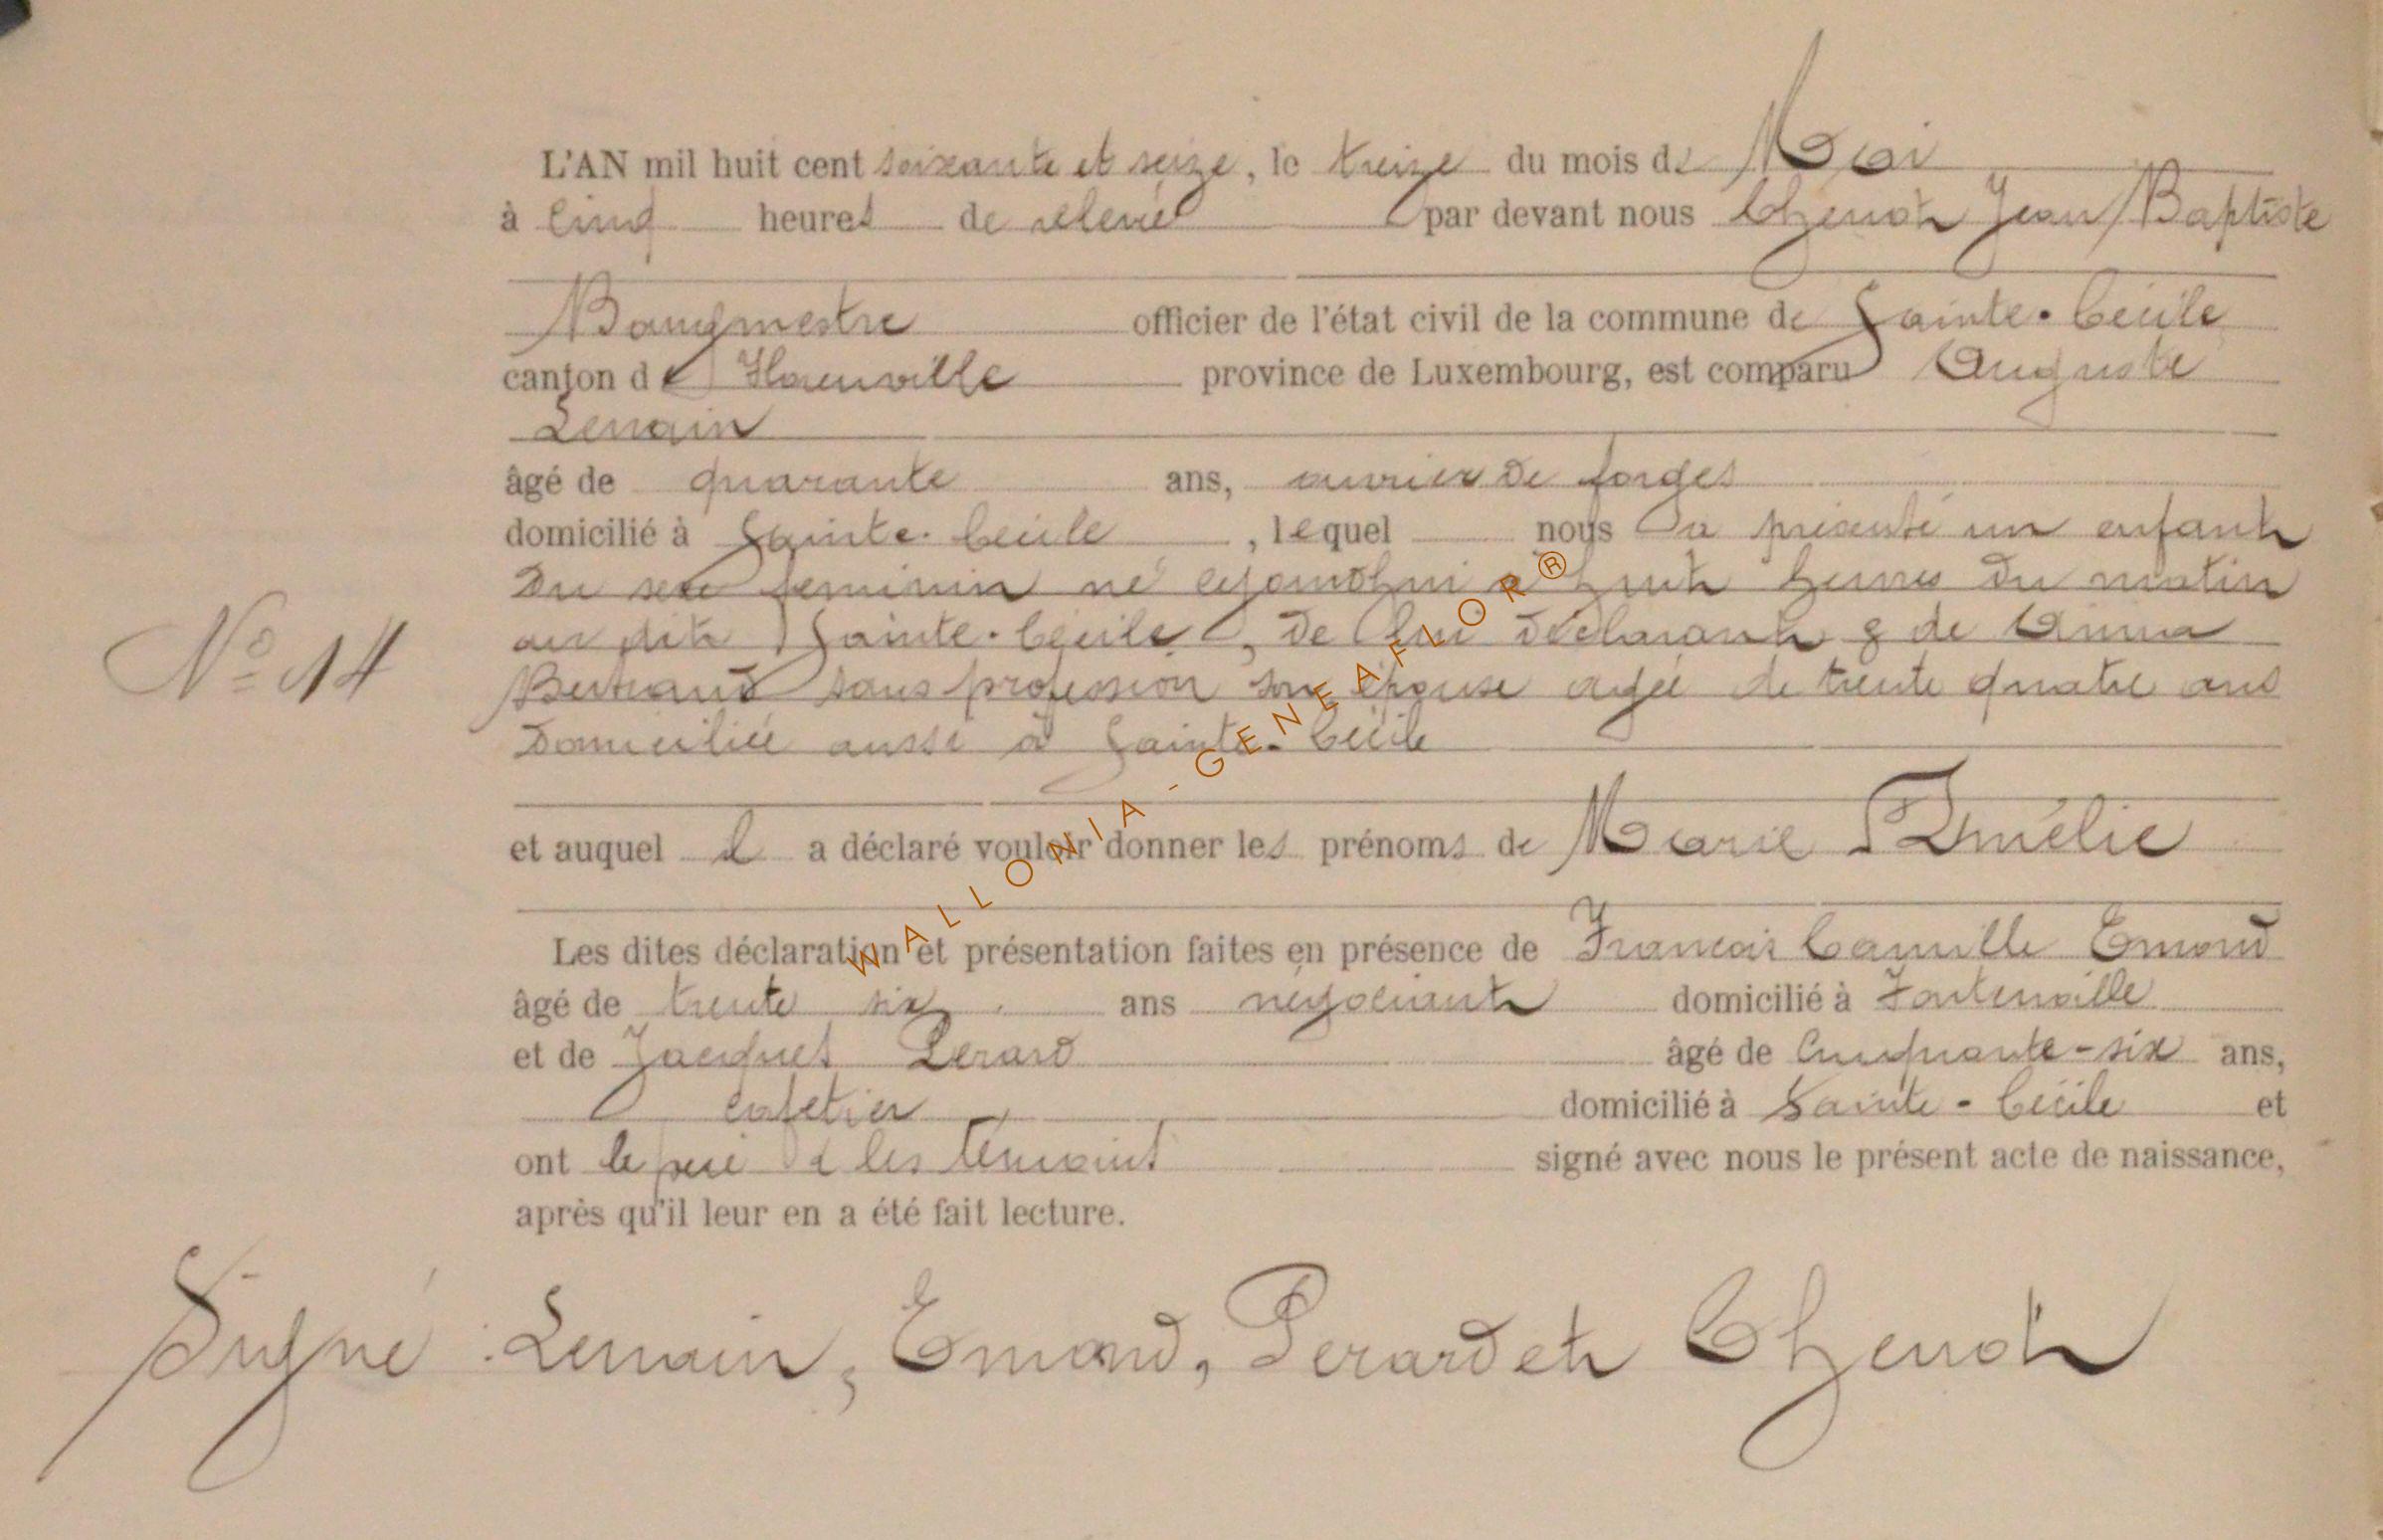 L'AN mil huit cent soixante et seize, le treize du mois de Mai
à cinq heures de relevée par devant nous Thenot Jean Baptiste
Bourgmestre officier de l'état civil de la commune de Sainte-Cécile
canton de Florenville province de Luxembourg, est comparu Auguste
Lemain
âgé de quarante ans, ouvrier de forges
domicilié à Sainte-Cécile, lequel nous a présenté un enfant
Du sexe feminin né aujourd'hui à huit heures du matin
au dit Sainte-Cécile, de lui déclarant & de Anna
N° 14
Bertrand sans profession son épouse agée de trente quatre ans
Domiciliée aussi à Sainte-Cécile
et auquel il a déclaré vouloir donner les prénoms de Marie Amélie
Les dites déclaration et présentation faites en présence de Francois Camille Emond
âgé de trente six ans négociant domicilié à Fontenoille
et de Jacques Perard âgé de Cinquante-six ans,
cafetier domicilié à Sainte-Cécile et
ont le père & les témoins signé avec nous le présent acte de naissance,
après qu'il leur en a été fait lecture.
Signé : Lemain, Emond, Perard et Thenot
WALLONIA-GENEAFLOR®